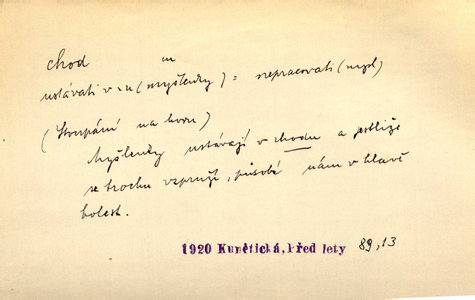 chod m
ustávati v -u (myšlenky) = nepracovati (mysl)
(Stoupání na horu)
Myšlenky ustávají v chodu a jestliže
se trochu vzpruží, působí nám v hlavě
bolest.
1920 Kunětická, Před lety 89,13